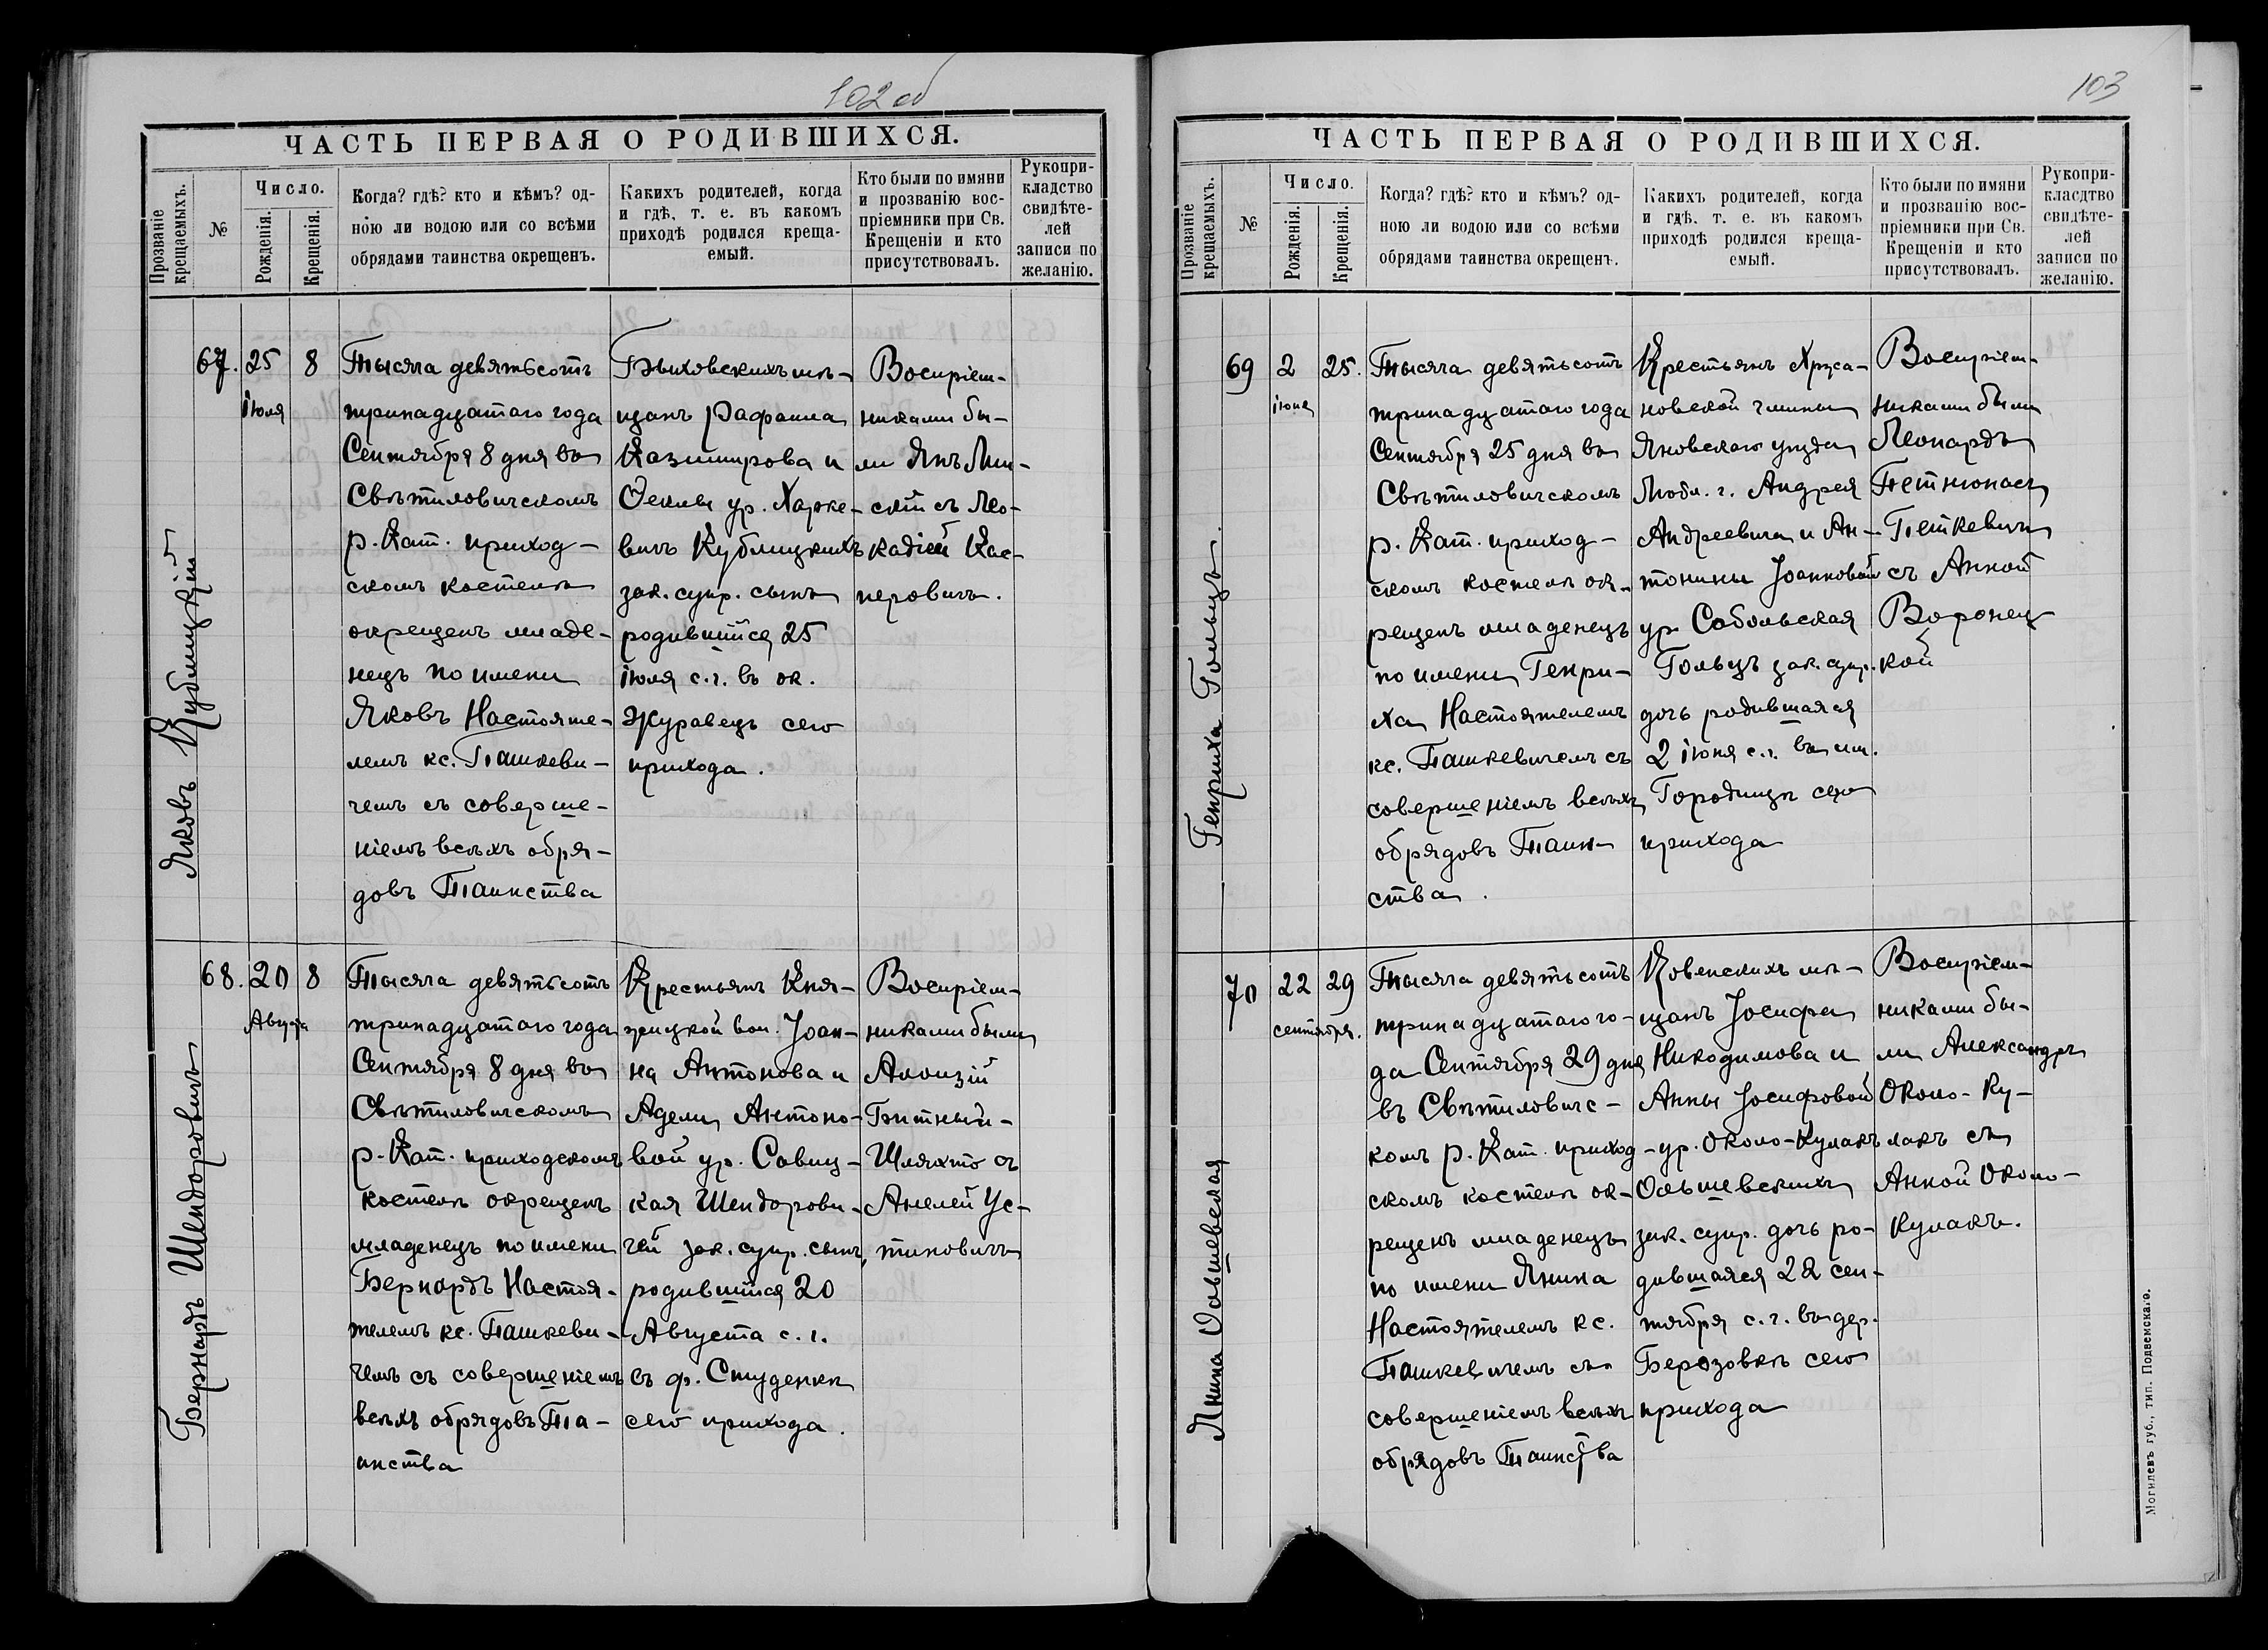 102 об
ЧАСТЬ ПЕРВАЯ О РОДИВШИХСЯ.
Прозваніе крещаемыхъ.
№
Число.
Рожденія.
Крещенія.
Когда? гдѣ? кто и кѣмъ? од-
ною ли водою или со всѣми
обрядами таинства окрещенъ.
Какихъ родителей, когда
и гдѣ, т. е. въ какомъ
приходѣ родился креща-
емый.
Кто были по имяни
и прозванію вос-
пріемники при Св.
Крещеніи и кто
присутствовалъ.
Рукопри-
кладство
свидѣте-
лей
записи по
желанію.
Яковъ Кублицкій
67.
25
Іюля
8
Тысяча девятьсотъ
тринадцатаго года
Сентября 8 дня въ
Свѣтиловическомъ
р. Кат. приход-
скомъ костелѣ
окрещенъ младе-
нецъ по имени
Яковъ Настояте-
лемъ кс. Пашкеви-
чемъ съ соверше-
ніемъ всѣхъ обря-
довъ Таинства
Быховскихъ мѣ-
щанъ Рафаила
Казимирова и
Феклы ур. Харке-
вичъ Кублицкихъ
зак. супр. сынъ
родившійся 25
Іюля с. г. въ ок.
Журавецъ сего
прихода.
Воспріем-
никами бы-
ли Янъ Лин-
скій съ Лео-
кадіей Кас-
перовичъ.
Бернардъ Шендоровичъ
68.
20
Августа
8
Тысяча девятьсотъ
тринадцатаго года
Сентября 8 дня въ
Свѣтиловическомъ
р. Кат. приходскомъ
костелѣ окрещенъ
младенецъ по имени
Бернардъ Настоя-
телемъ кс. Пашкеви-
чемъ съ совершеніемъ
всѣхъ обрядовъ Та-
инства
Крестьянъ Кня-
жицкой вол. Іоан-
на Антонова и
Адели Антоно-
вой ур. Савиц-
кая Шендорови-
чей зак. супр. сынъ,
родившійся 20
Августа с. г.
въ ф. Студенкѣ
сего прихода.
Воспріем-
никами были
Алоизій
Битный-
Шляхто съ
Анелей Ус-
тиновичъ
103
ЧАСТЬ ПЕРВАЯ О РОДИВШИХСЯ.
Прозваніе крещаемыхъ.
№
Число.
Рожденія.
Крещенія.
Когда? гдѣ? кто и кѣмъ? од-
ною ли водою или со всѣми
обрядами таинства окрещенъ.
Какихъ родителей, когда
и гдѣ, т. е. въ какомъ
приходѣ родился креща-
емый.
Кто были по имяни
и прозванію вос-
пріемники при Св.
Крещеніи и кто
присутствовалъ.
Рукопри-
класдтво
свидѣте-
лей
записи по
желанію.
Генриха Гольцъ.
69
2
Іюня
25.
Тысяча девятьсотъ
тринадцатаго года
Сентября 25 дня въ
Свѣтиловическомъ
р. Кат. приход-
скомъ костелѣ ок-
рещенъ младенецъ
по имени Генри-
ха Настоятелемъ
кс. Пашкевичемъ съ
совершеніемъ всѣхъ
обрядовъ Таин-
ства.
Крестьянъ Хрса-
новской гмины
Яновскаго уѣзда
Любл. г. Андрея
Андреевича и Ан-
тонины Іоанновой
ур. Собольская
Гольцъ зак. супр.
дочь родившаяся
2 Іюня с. г. въ им.
Городищѣ сего
прихода
Воспріем-
никами были
Леонардъ
Петкевичъ
съ Анной
Воронец-
кой
Янина Ольшевская
70
22
сентября.
29
Тысяча девятьсотъ
тринадцатаго го-
да Сентября 29 дня
въ Свѣтиловичс-
комъ р. Кат. приход-
скомъ костелѣ ок-
рещенъ младенецъ
по имени Янина
Настоятелемъ кс.
Пашкевичемъ съ
совершеніемъ всѣхъ
обрядовъ Таинства
Ковенскихъ мѣ-
щанъ Іосифа
Никодимова и
Анны Іосифовой
ур. Около-Кулакъ
Ольшевскихъ
зак. супр. дочь ро-
дившаяся 22 сен-
тября с. г. въ дер.
Березовкѣ сего
прихода
Воспріем-
никами бы-
ли Александръ
Около-Ку-
лакъ съ
Анной Около-
Кулакъ.
Могилевъ губ., тип. Подземскаго.